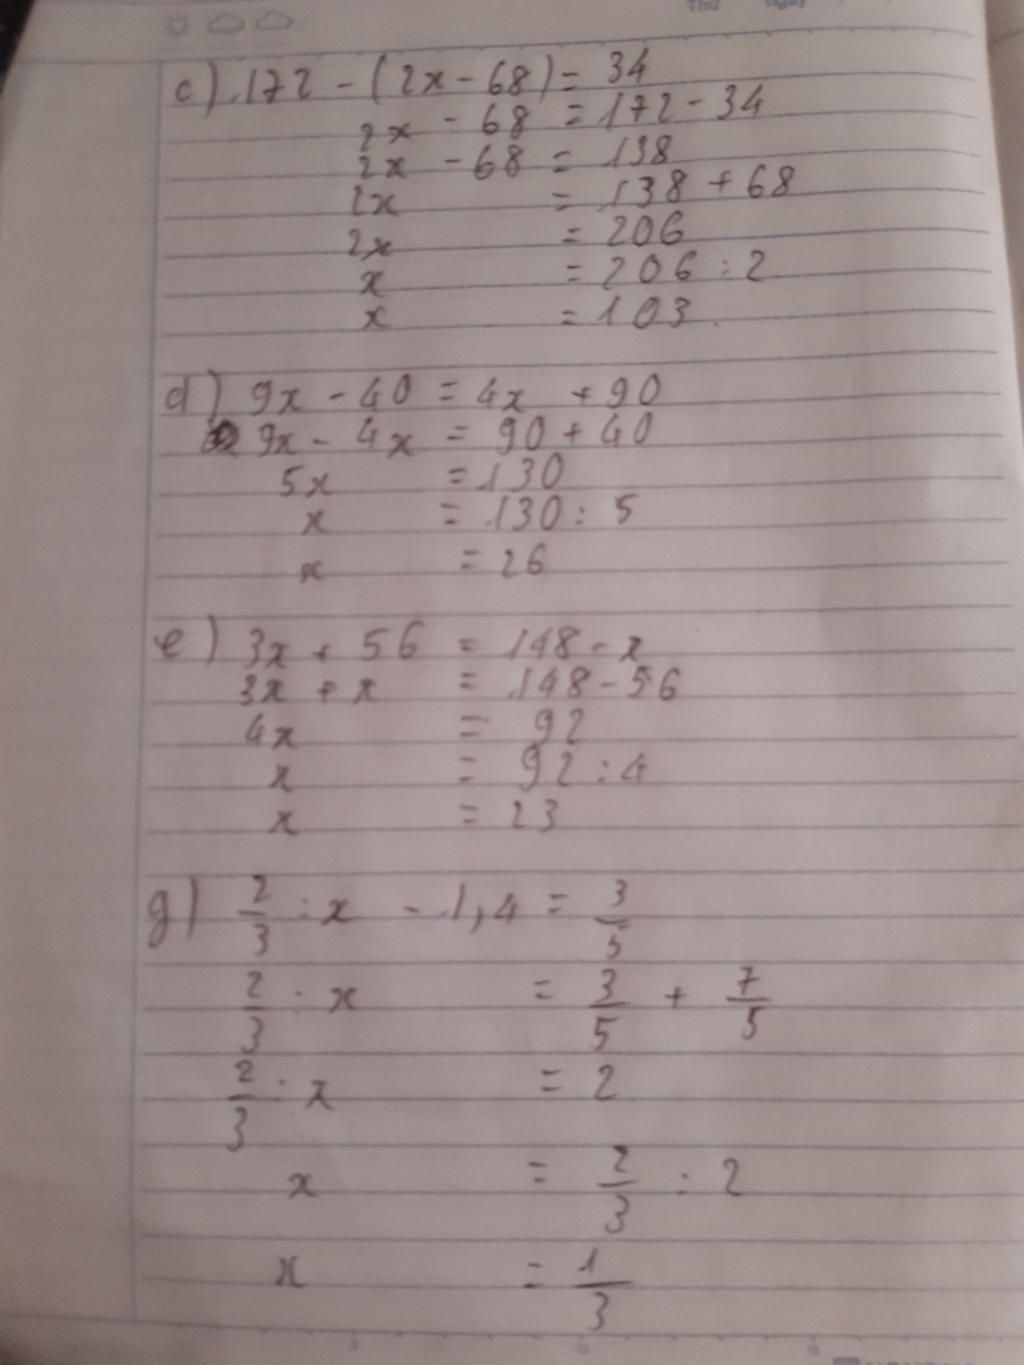 Thứ ngày
c) 172 - (2x - 68) = 34
2x - 68 = 172 - 34
2x - 68 = 138
2x = 138 + 68
2x = 206
x = 206 : 2
x = 103.
d) 9x - 40 = 4x + 90
9x - 4x = 90 + 40
5x = 130
x = 130 : 5
x = 26
e) 3x + 56 = 148 - x
3x + x = 148 - 56
4x = 92
x = 92 : 4
x = 23
g) 2/3 : x - 1,4 = 3/5
2/3 : x = 3/5 + 7/5
2/3 : x = 2
x = 2/3 : 2
x = 1/3